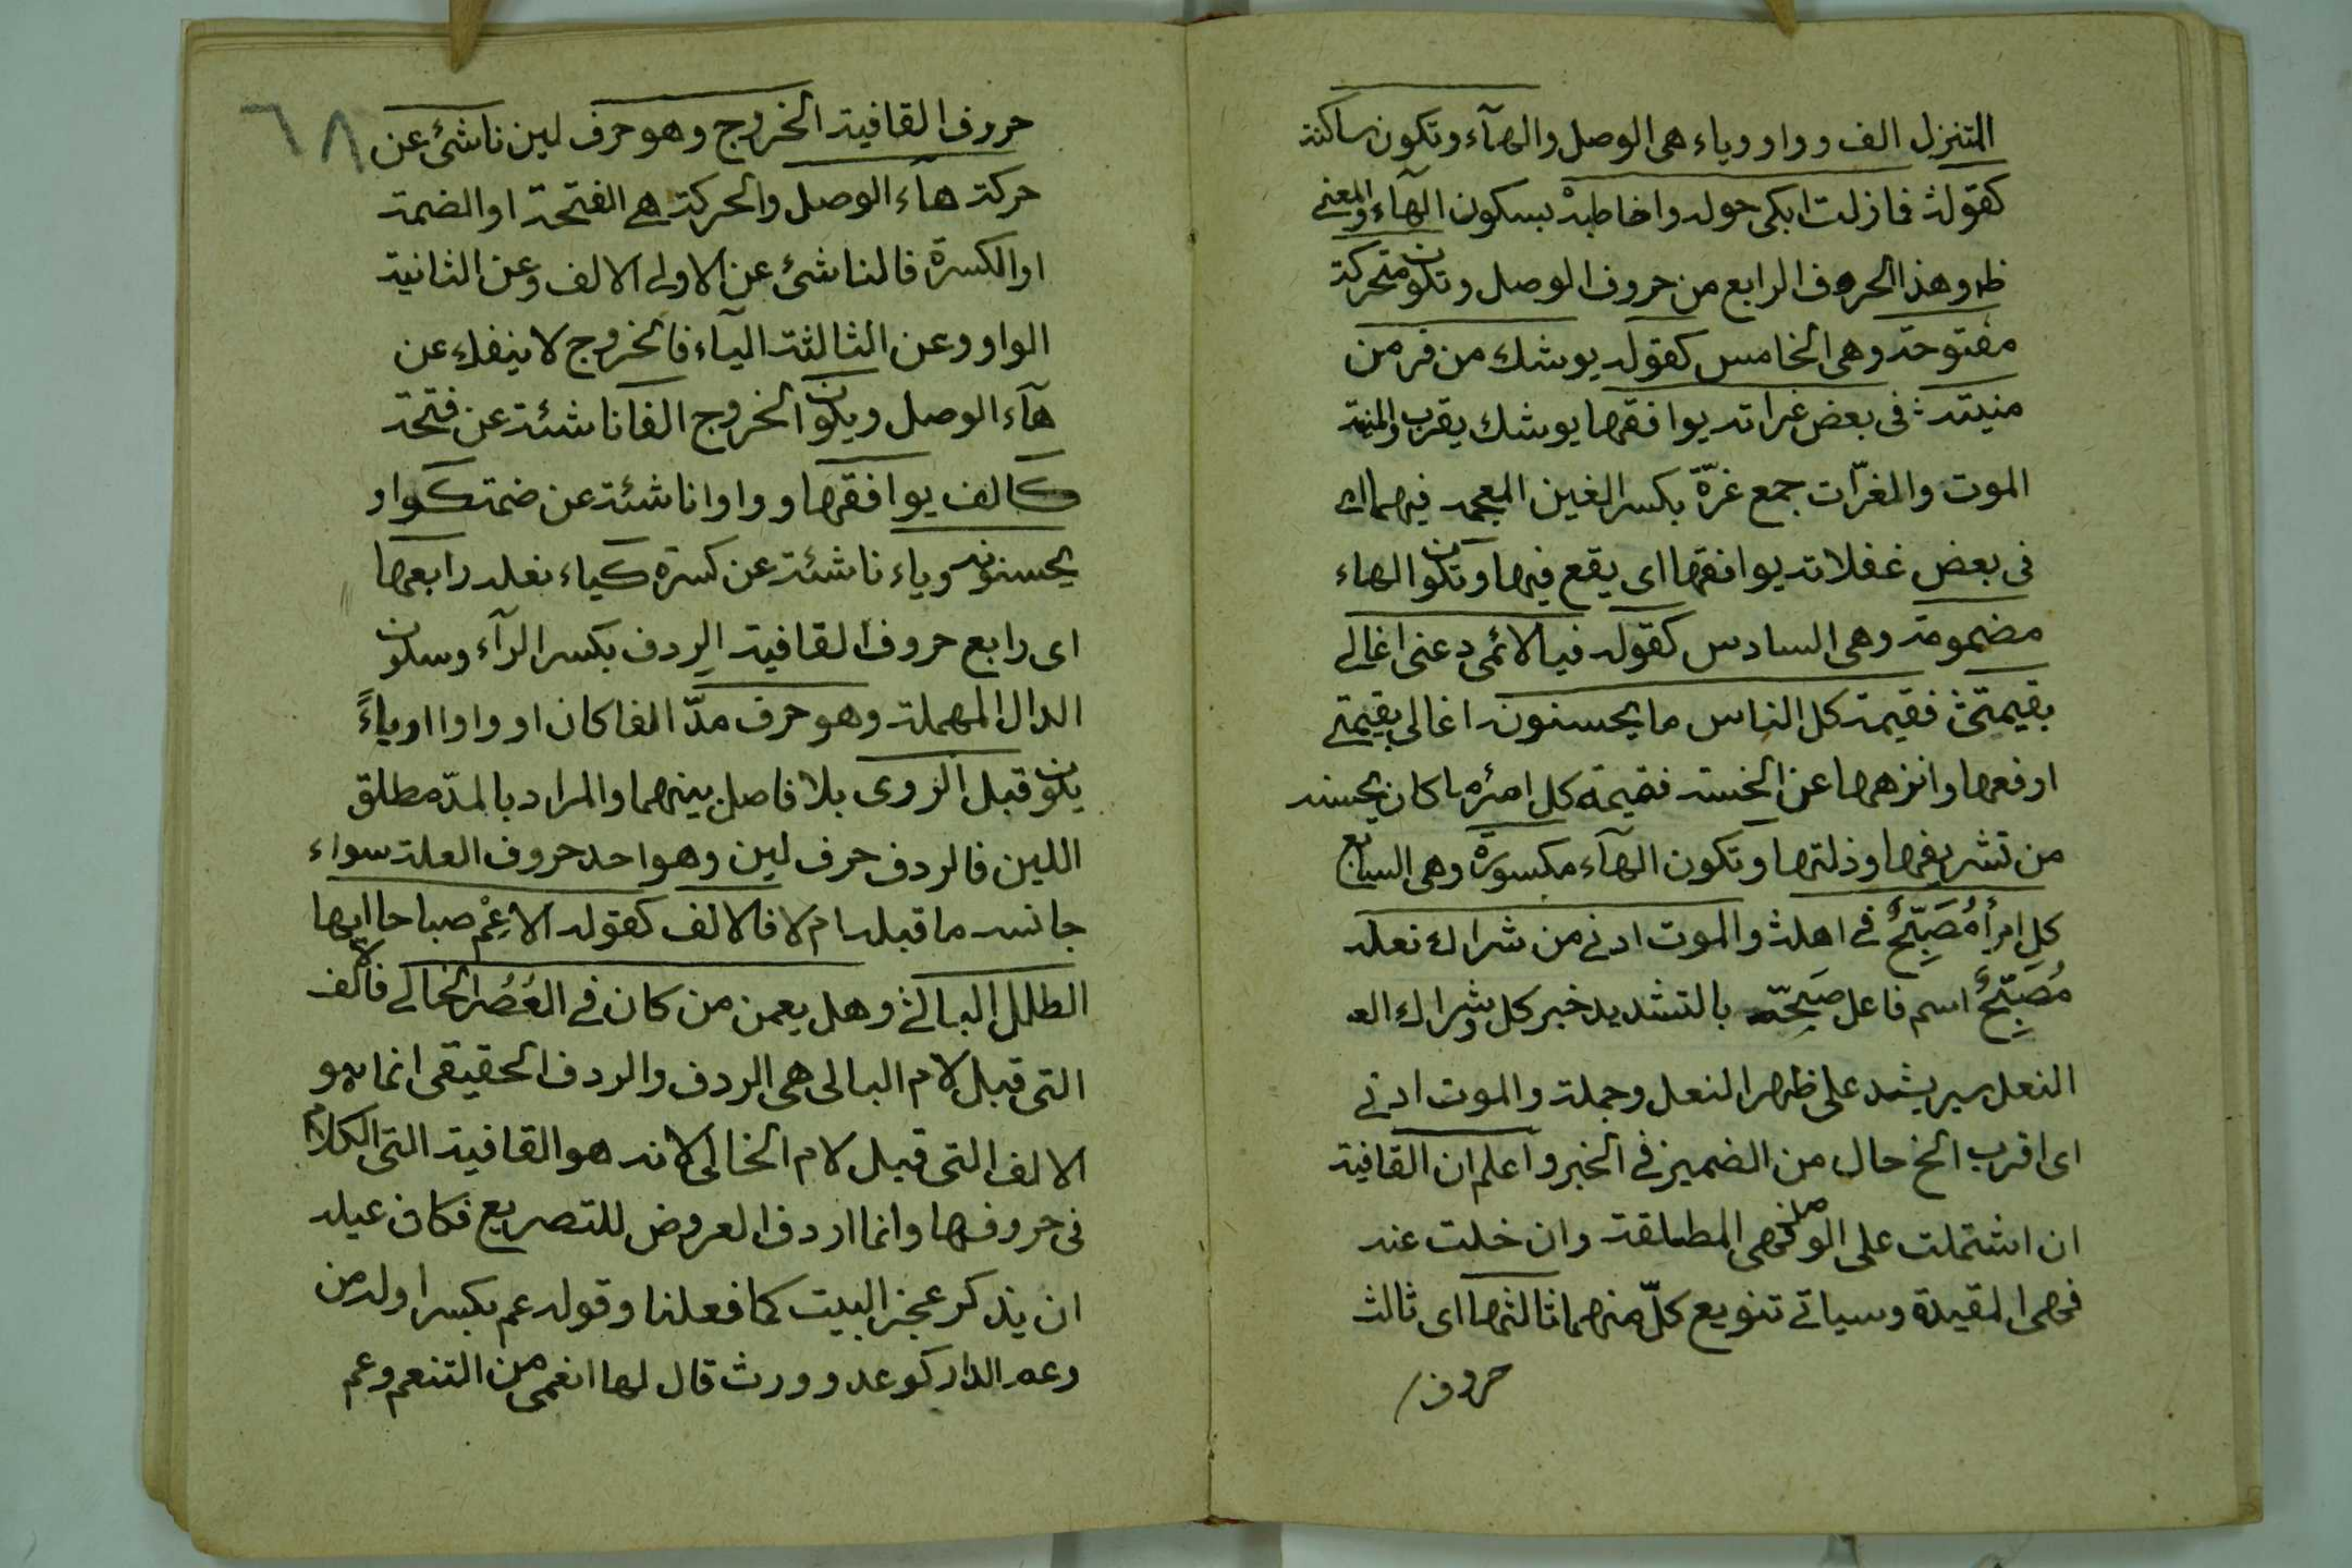 المتنزل الف وواو وياء هى الوصل والهآء وتكون ساكنة
كقوله فما زلت ابكى حوله واخاطبهْ بسكون الهآء والمعنى
ظ وهذا الحروف الرابع من حروف الوصل وتكون متحركة
مفتوحة وهى الخامس كقوله يوشك من فر من
منيته فى بعض غراته يوافقها يوشك يقرب والمنية
الموت والغرّات جمع غرّة بكسر الغين المعجمه فيهما اى
فى بعض غفلاته يوافقها اى يقع فيها وتكون الهاء
مضمومة وهى السادس كقوله فيا لائمى دعنى اغالى
بقيمتى فقيمة كل الناس ما يحسنونه اغالى بقيمتى
ارفعها وانزهها عن الخسة فقيمة كل امرء ما كان يحسنه
من تشريفها وذلتها وتكون الهآء مكسورة وهى السابع
كل امرأ مُصَبَّحٌ فى اهله والموت ادنى من شراك نعله
مُصَبِّحٌ اسم فاعل صبّحته بالتشديد خبر كل وشراك
النعل سير يشد على ظهر النعل وجملة والموت ادنى
اى اقرب الخ حال من الضمير فى الخبر واعلم ان القافية
ان اشتملت على الوصل فهى المطلقة وان خلت عنه
فهى المقيدة وسياتى تنويع كلّ منهما ثالثها اى ثالث
حروف
٦٨
حروف القافية الخروج وهو حرف لين ناشئ عن
حركة هآء الوصل والحركة هى الفتحة او الضمة
او الكسرة فالناشئ عن الاولى الالف وعن الثانية
الواو وعن الثالثة اليآء فالخروج لا ينفك عن
هآء الوصل ويكون الخروج الفا ناشئة عن فتحة
كالف يوافقها وواوا ناشئة عن ضمة كواو
يحسنونه وياء ناشئة عن كسرة كياء نعله رابعها
اى رابع حروف القافية الردف بكسر الرآء وسكون
الدال المهملة وهو حرف مدّ الفا كان او واوا او ياءً
يكون قبل الروى بلا فاصل بينهما والمراد بالمدّ مطلق
اللين فالردف حرف لين وهو احد حروف العلة سواء
جانسه ما قبله ام لا فالالف كقوله الا عِمْ صباحا ايها
الطلل البالى وهل يعمن من كان فى العُصُر الخالى فالالف
التى قبل لام البالى هى الردف والردف الحقيقى انما هو
الالف التى قبل لام الخالى لانه هو القافية التى الكلام
فى حروفها وانما اردف العروض للتصريع فكان عليه
ان يذكر عجز البيت كما فعلنا وقوله عم بكسر اوله من
وعم الدار كوعد وورث قال لها انعمى من التنعم وعم